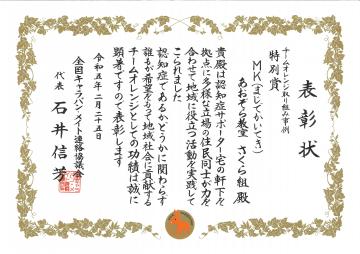 表彰状
チームオレンジ取り組み事例
特別賞
MK(まじでかいてき)
あおぞら教室 さくら組 殿
貴殿は認知症サポーター宅の軒下を
拠点に多様な立場の住民同士が力を
合わせて地域に役立つ活動を実践して
こられました
認知症であるかどうかに関わらず
誰もが希望をもって地域社会に貢献する
チームオレンジとしての功績は誠に
顕著ですので表彰します
令和五年二月二十五日
全国キャラバンメイト連絡協議会
代表 石井信芳